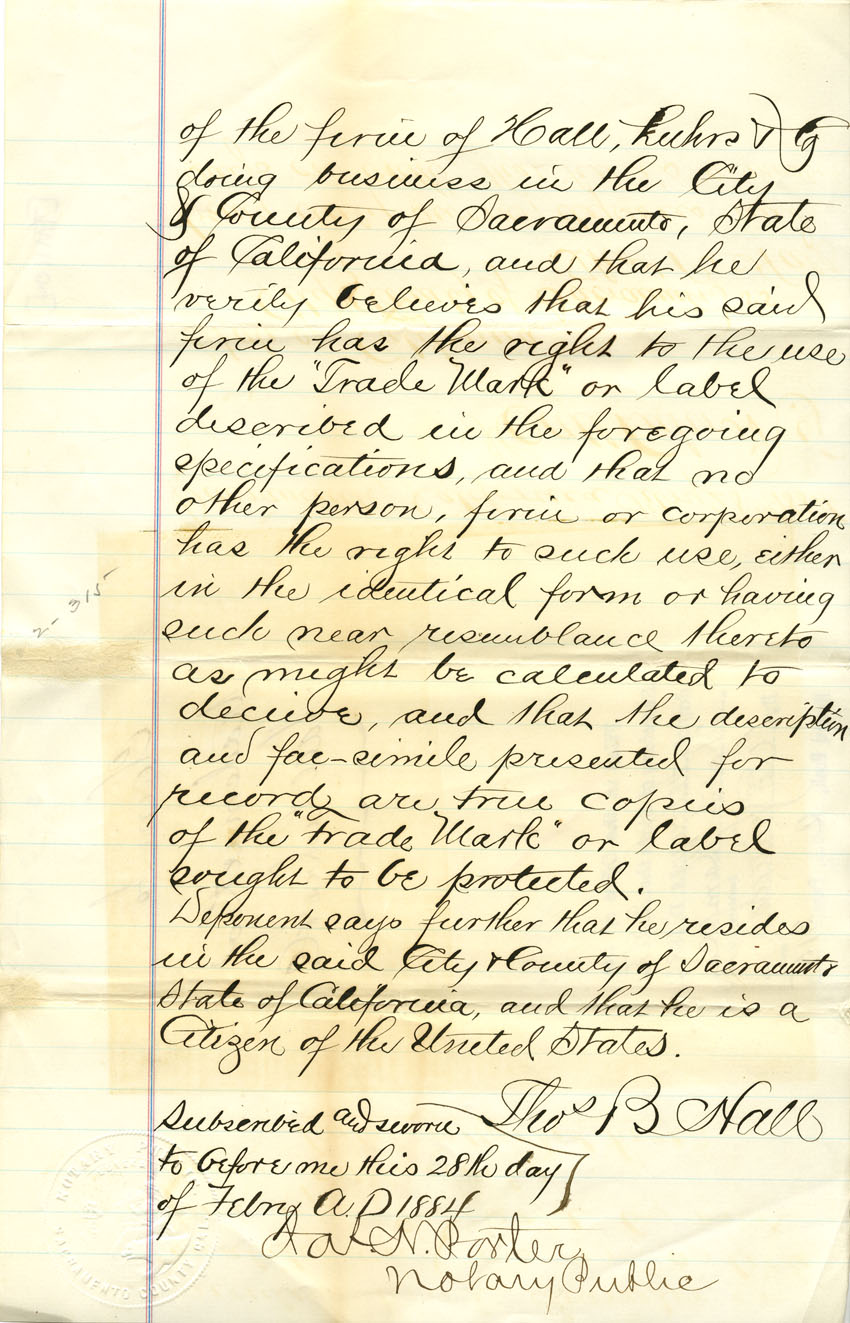 of the firm of Hall, Luhrs & Co
doing business in the City
& County of Sacramento, State
of California, and that he
verily believes that his said
firm has the right to the use
of the "Trade Mark" or label
described in the foregoing
specifications, and that no
other person, firm or corporation
has the right to such use, either
in the identical form or having
such near resemblance thereto
as might be calculated to
deceive, and that the description
and fac-simile presented for
record, are true copies
of the "Trade Mark" or label
sought to be protected.
Deponent says further that he resides
in the said City & County of Sacramento
State of California, and that he is a
Citizen of the United States.
Thos B Hall
Subscribed and sworn
to before me this 28th day
of Febry A.D 1884
N. Porter
Notary Public
2-315
NOTARY
SACRAMENTO COUNTY CAL